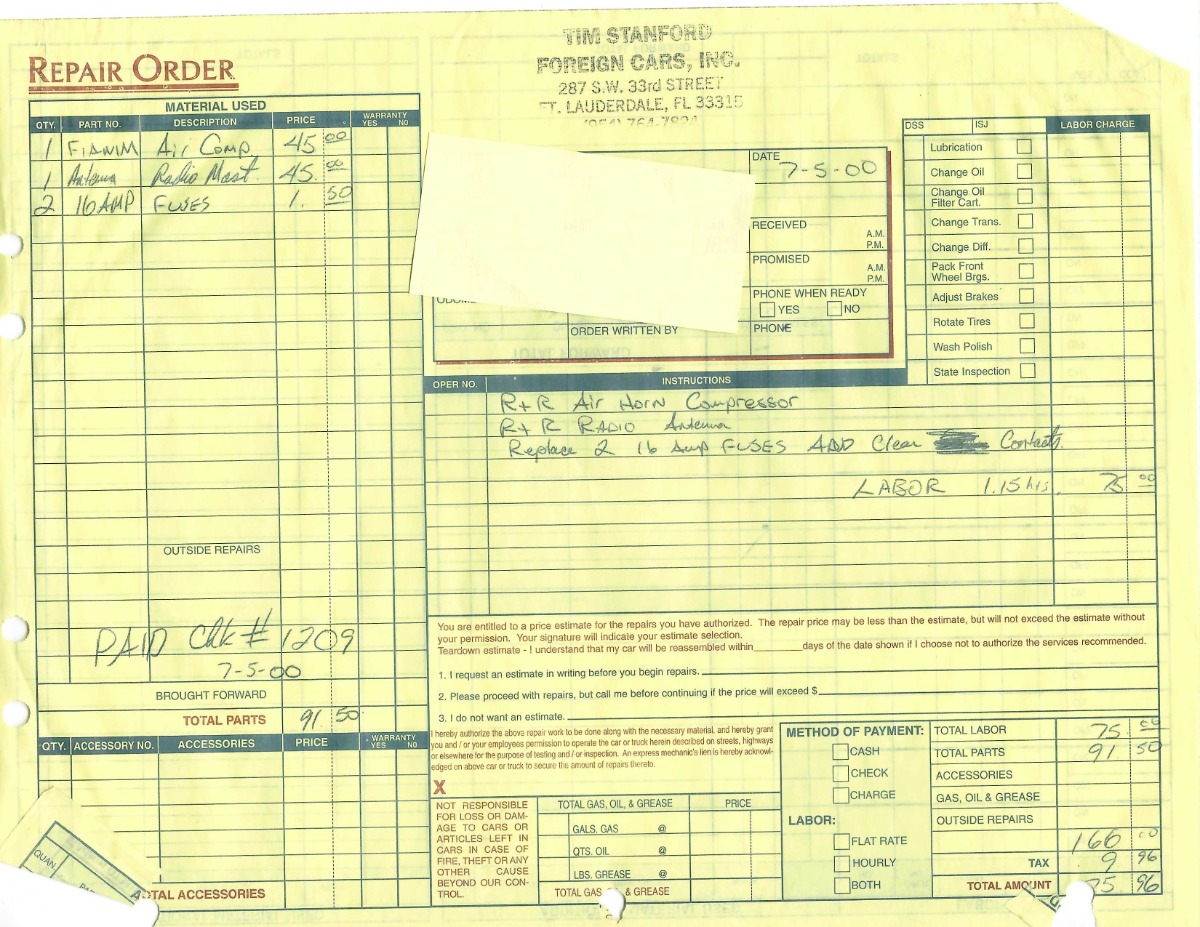 TIM STANFORD
FOREIGN CARS, INC.
287 S.W. 33rd STREET
FT. LAUDERDALE, FL 33315
(954) 764-7824
REPAIR ORDER
MATERIAL USED
QTY. PART NO. DESCRIPTION PRICE WARRANTY YES NO
1 FIAMM Air Comp 45 00
1 Antenna Radio Mast. 45. 00
2 16 AMP FUSES 1. 50
OUTSIDE REPAIRS
PAID Chk # 1209
7-5-00
BROUGHT FORWARD
TOTAL PARTS 91 50
QTY. ACCESSORY NO. ACCESSORIES PRICE WARRANTY YES NO
QUAN
TOTAL ACCESSORIES
DATE 7-5-00
RECEIVED A.M.
P.M.
PROMISED A.M.
P.M.
PHONE WHEN READY
YES NO
ORDER WRITTEN BY PHONE
DSS ISJ LABOR CHARGE
Lubrication
Change Oil
Change Oil
Filter Cart.
Change Trans.
Change Diff.
Pack Front
Wheel Brgs.
Adjust Brakes
Rotate Tires
Wash Polish
State Inspection
OPER NO. INSTRUCTIONS
R+R Air Horn Compressor
R+R RADIO Antenna
Replace 2 16 Amp FUSES AND Clean Contacts.
LABOR 1.15 hrs. 75 00
You are entitled to a price estimate for the repairs you have authorized. The repair price may be less than the estimate, but will not exceed the estimate without
your permission. Your signature will indicate your estimate selection.
Teardown estimate - I understand that my car will be reassembled within ________ days of the date shown if I choose not to authorize the services recommended.
1. I request an estimate in writing before you begin repairs.
2. Please proceed with repairs, but call me before continuing if the price will exceed $
3. I do not want an estimate.
I hereby authorize the above repair work to be done along with the necessary material, and hereby grant
you and / or your employees permission to operate the car or truck herein described on streets, highways
or elsewhere for the purpose of testing and / or inspection. An express mechanic's lien is hereby acknowl-
edged on above car or truck to secure the amount of repairs thereto.
X
NOT RESPONSIBLE
FOR LOSS OR DAM-
AGE TO CARS OR
ARTICLES LEFT IN
CARS IN CASE OF
FIRE, THEFT OR ANY
OTHER CAUSE
BEYOND OUR CON-
TROL.
TOTAL GAS, OIL, & GREASE PRICE
GALS. GAS @
QTS. OIL @
LBS. GREASE @
TOTAL GAS, & GREASE
METHOD OF PAYMENT:
CASH
CHECK
CHARGE
LABOR:
FLAT RATE
HOURLY
BOTH
TOTAL LABOR 75 00
TOTAL PARTS 91 50
ACCESSORIES
GAS, OIL & GREASE
OUTSIDE REPAIRS
166 00
TAX 9 96
TOTAL AMOUNT 75 96